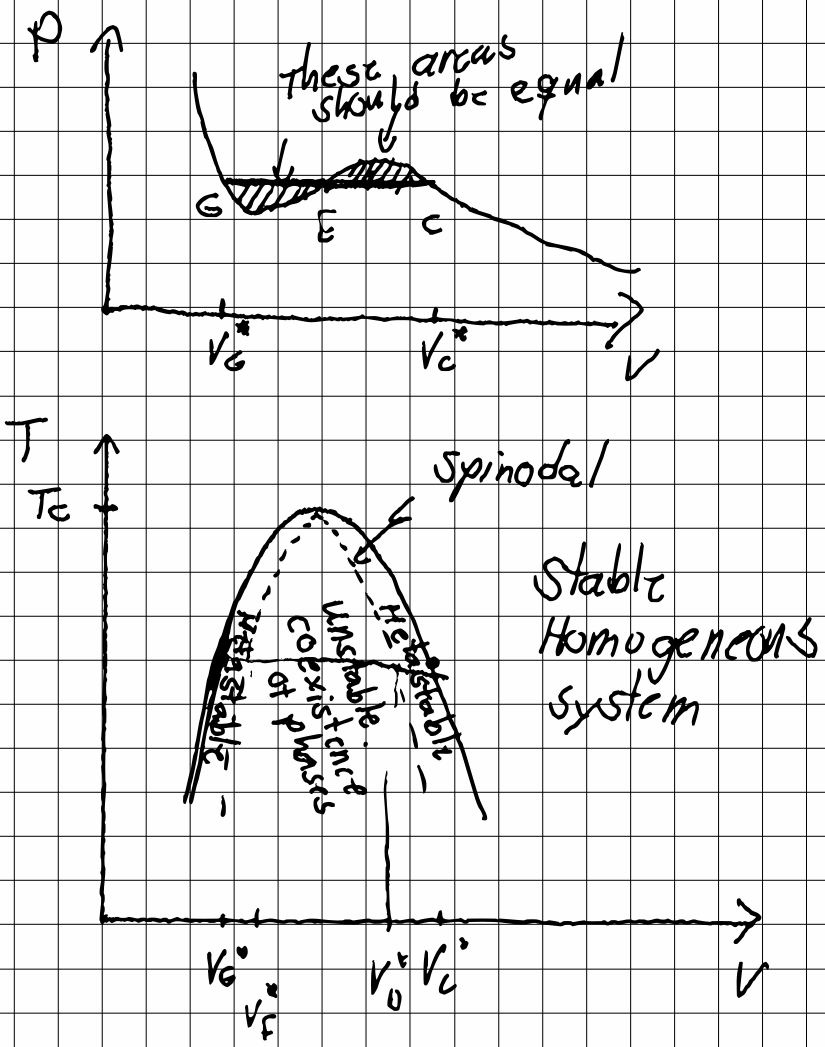 P
These areas
should be equal
G
E
C
V_G*
V_C*
V
T
T_C
Spinodal
Stable
Homogeneous
system
Metastable
Unstable.
coexistence
of phases
Metastable
V_G*
V_F*
V_D*
V_C*
V